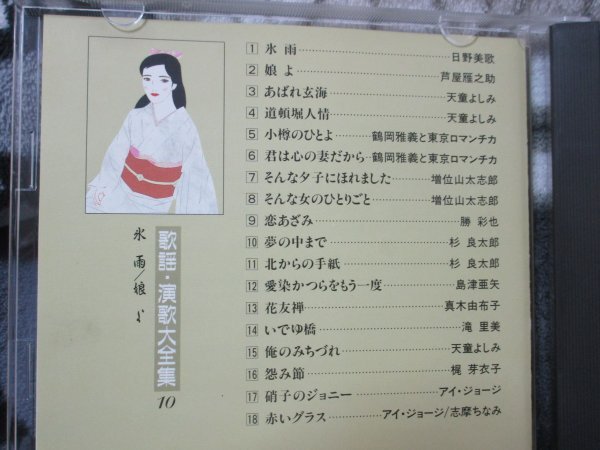 1 氷 雨 日野美歌
2 娘 よ 芦屋雁之助
3 あばれ玄海 天童よしみ
4 道頓堀人情 天童よしみ
5 小樽のひとよ 鶴岡雅義と東京ロマンチカ
6 君は心の妻だから 鶴岡雅義と東京ロマンチカ
7 そんな夕子にほれました 増位山太志郎
8 そんな女のひとりごと 増位山太志郎
9 恋あざみ 勝 彩也
10 夢の中まで 杉 良太郎
11 北からの手紙 杉 良太郎
12 愛染かつらをもう一度 島津亜矢
13 花友禅 真木由布子
14 いでゆ橋 滝 里美
15 俺のみちづれ 天童よしみ
16 怨み節 梶 芽衣子
17 硝子のジョニー アイ・ジョージ
18 赤いグラス アイ・ジョージ/志摩ちなみ
歌謡・演歌大全集 10
氷 雨/娘 よ